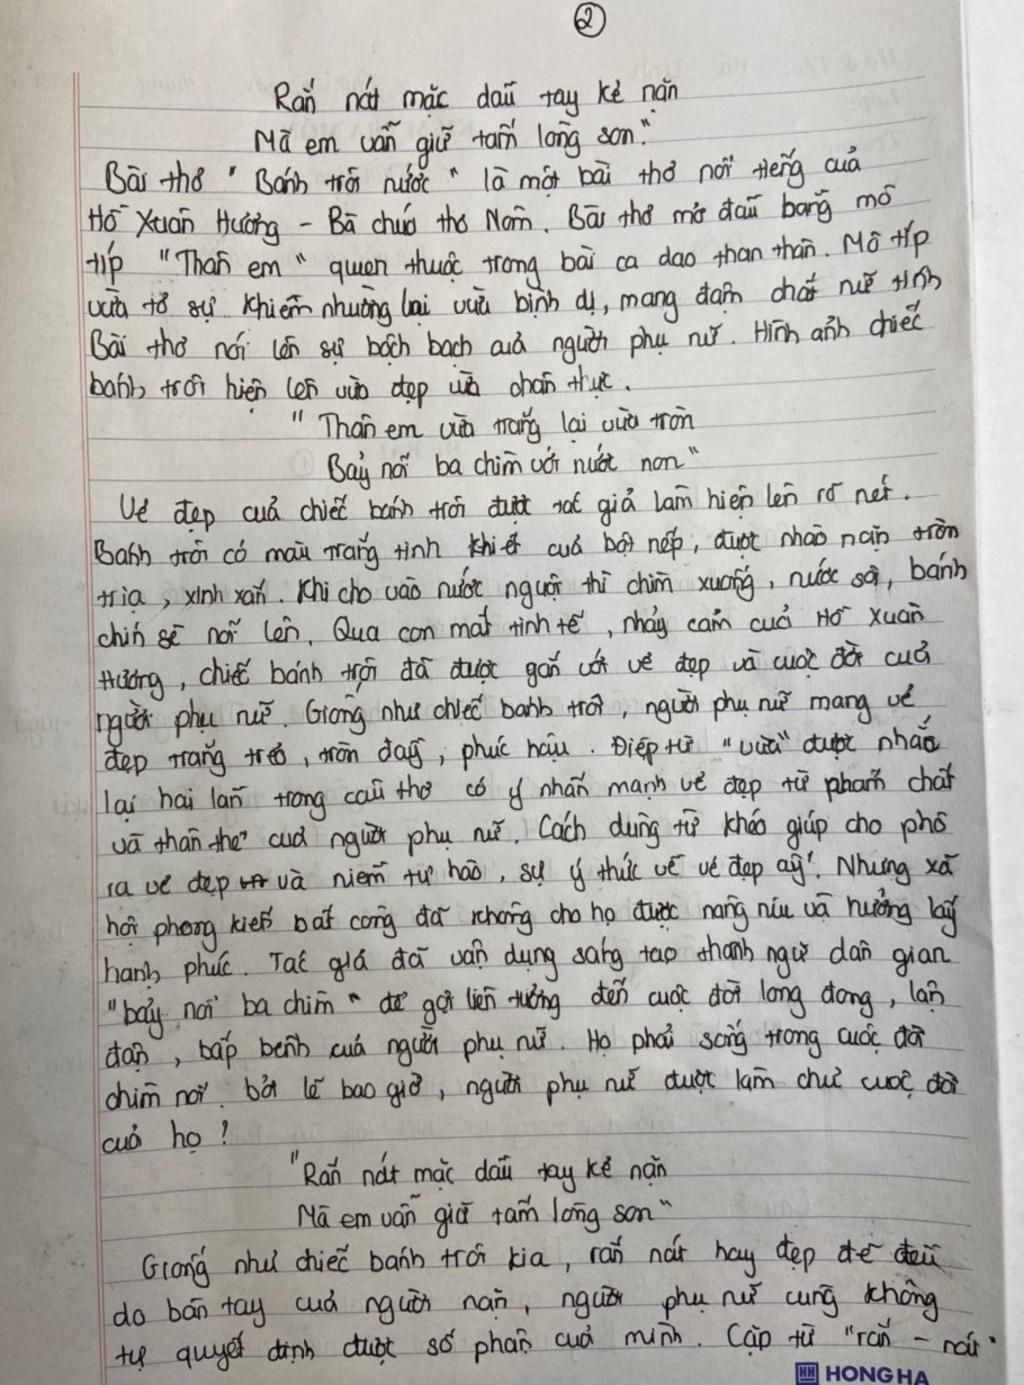 2
Rắn nát mặc dầu tay kẻ nặn
Mà em vẫn giữ tấm lòng son."
Bài thơ "Bánh trôi nước" là một bài thơ nổi tiếng của
Hồ Xuân Hương - Bà chúa thơ Nôm. Bài thơ mở đầu bằng mô
típ "Thân em" quen thuộc trong bài ca dao than thân. Mô típ
vừa tỏ sự khiêm nhường lại vừa bình dị, mang đậm chất nữ tính
Bài thơ nói lên sự bộch bạch của người phụ nữ. Hình ảnh chiếc
bánh trôi hiện lên vừa đẹp vừa chân thực.
"Thân em vừa trắng lại vừa tròn
Bảy nổi ba chìm với nước non"
Vẻ đẹp của chiếc bánh trôi được tác giả làm hiện lên rõ nét.
Bánh trôi có màu trắng tinh khiết của bột nếp, được nhào nặn tròn
trịa, xinh xắn. Khi cho vào nước nguội thì chìm xuống, nước sôi, bánh
chín sẽ nổi lên. Qua con mắt tinh tế, nhạy cảm của Hồ Xuân
Hương, chiếc bánh trôi đã được gắn với vẻ đẹp và cuộc đời của
người phụ nữ. Giống như chiếc bánh trôi, người phụ nữ mang vẻ
đẹp trắng trẻo, tròn đầy, phúc hậu. Điệp từ "vừa" được nhắc
lại hai lần trong câu thơ có ý nhấn mạnh vẻ đẹp từ phẩm chất
và thân thể của người phụ nữ. Cách dùng từ khéo giúp cho phô
ra vẻ đẹp và niềm tự hào, sự ý thức về vẻ đẹp ấy. Nhưng xã
hội phong kiến bất công đã không cho họ được nâng niu và hưởng lấy
hạnh phúc. Tác giả đã vận dụng sáng tạo thành ngữ dân gian
"bảy nổi ba chìm" để gợi liên tưởng đến cuộc đời long đong, lận
đận, bấp bênh của người phụ nữ. Họ phải sống trong cuộc đời
chìm nổi bởi lẽ bao giờ, người phụ nữ được làm chủ cuộc đời
của họ?
"Rắn nát mặc dầu tay kẻ nặn
Mà em vẫn giữ tấm lòng son"
Giống như chiếc bánh trôi kia, rắn nát hay đẹp đẽ đều
do bàn tay của người nặn, người phụ nữ cũng không
tự quyết định được số phận của mình. Cặp từ "rắn - nát"
HH HONG HA